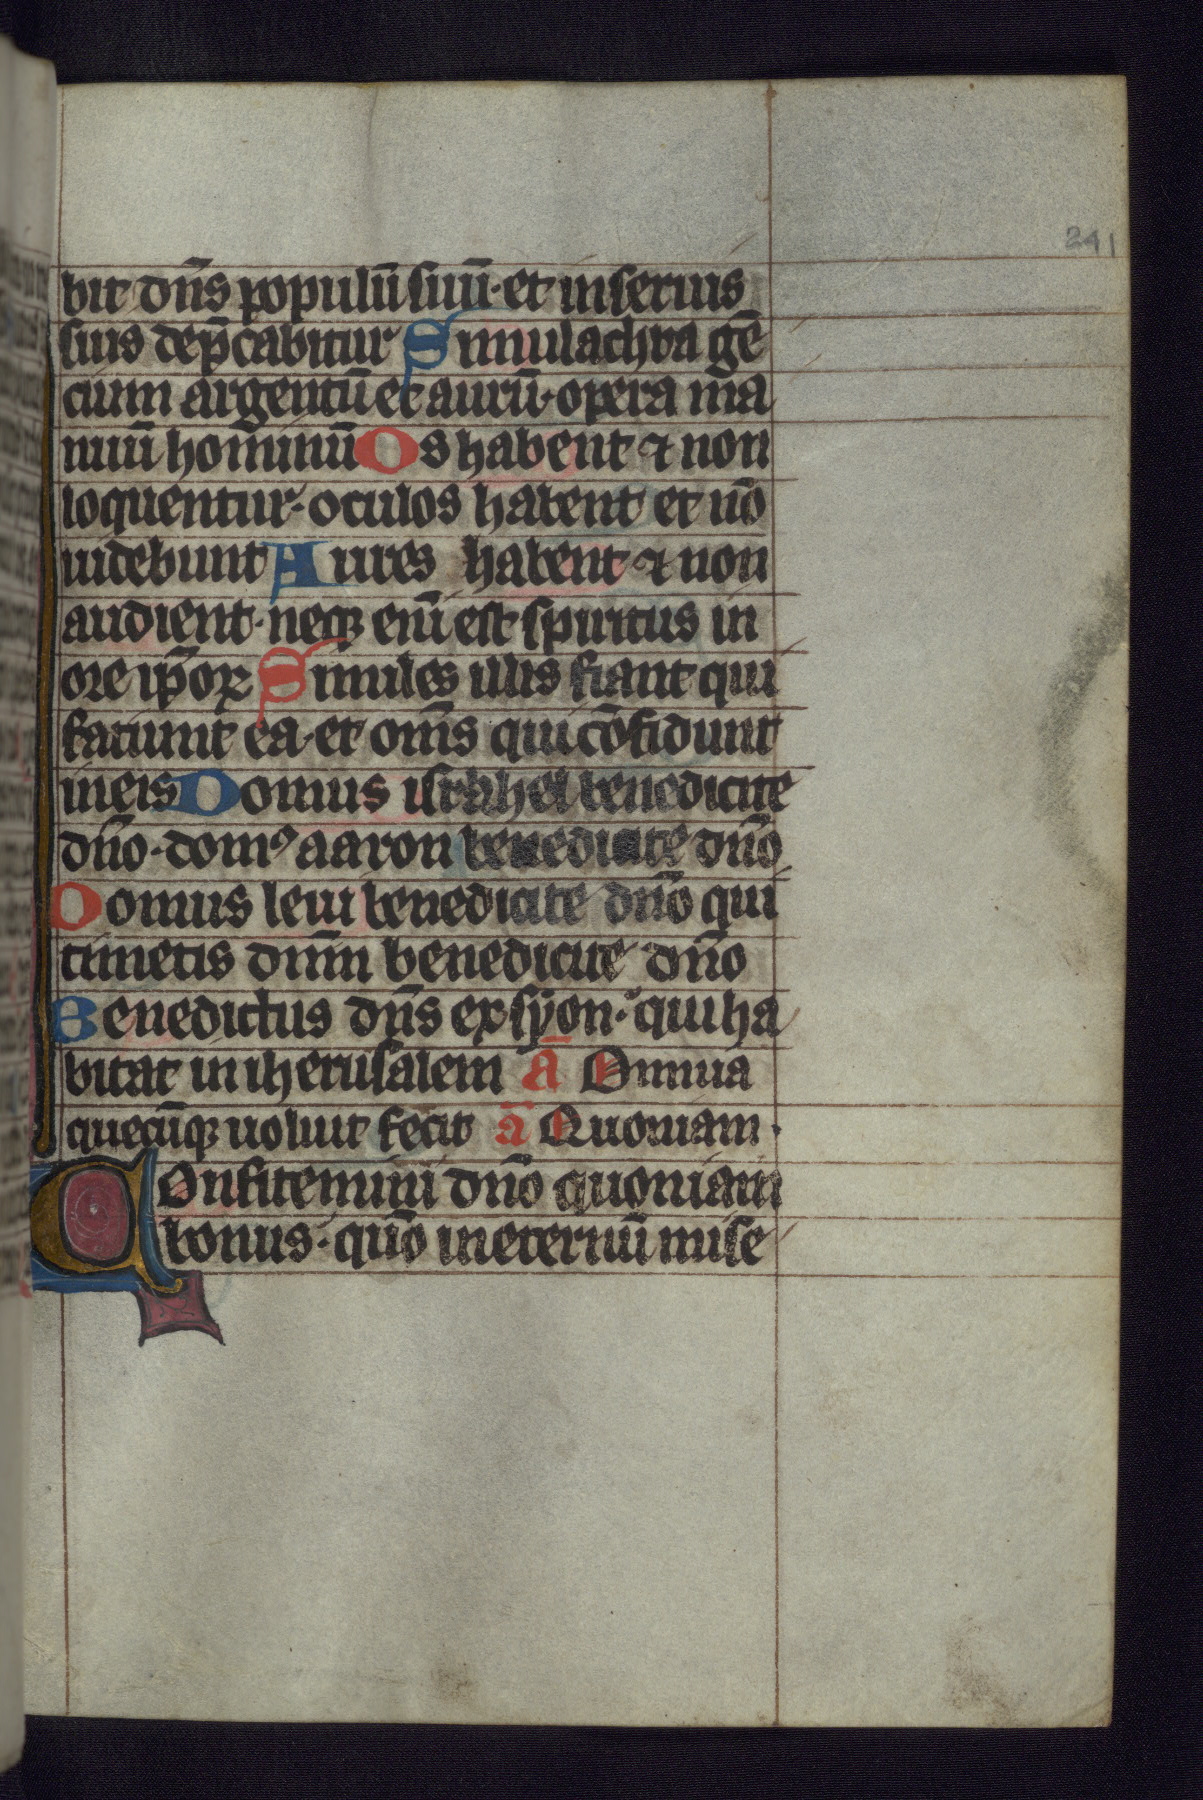 241
bit dn̄s populū suū· et in seruis
suis dep̄cabitur Simulachra gē
cium argentū et aurū· opera ma
nuū hominū Os habent ⁊ non
loquentur· oculos habent et nō
uidebunt Aures habent ⁊ non
audient· neqꝫ enī est spiritus in
ore ip̄oꝝ Similes illis fiant qui
faciunt ea· et om̄s qui cōfidunt
in eis Domus israhel benedicite
dn̄o· domꝰ aaron benedicite dn̄o
Domus leui benedicite dn̄o qui
timetis dn̄m benedicite dn̄o
Benedictus dn̄s ex syon· qui ha
bitat in iherusalem ā Omnia
quecūqꝫ uoluit fecit ā Quoniam·
Confitemini dn̄o quoniam
bonus· qūo in eternū mise